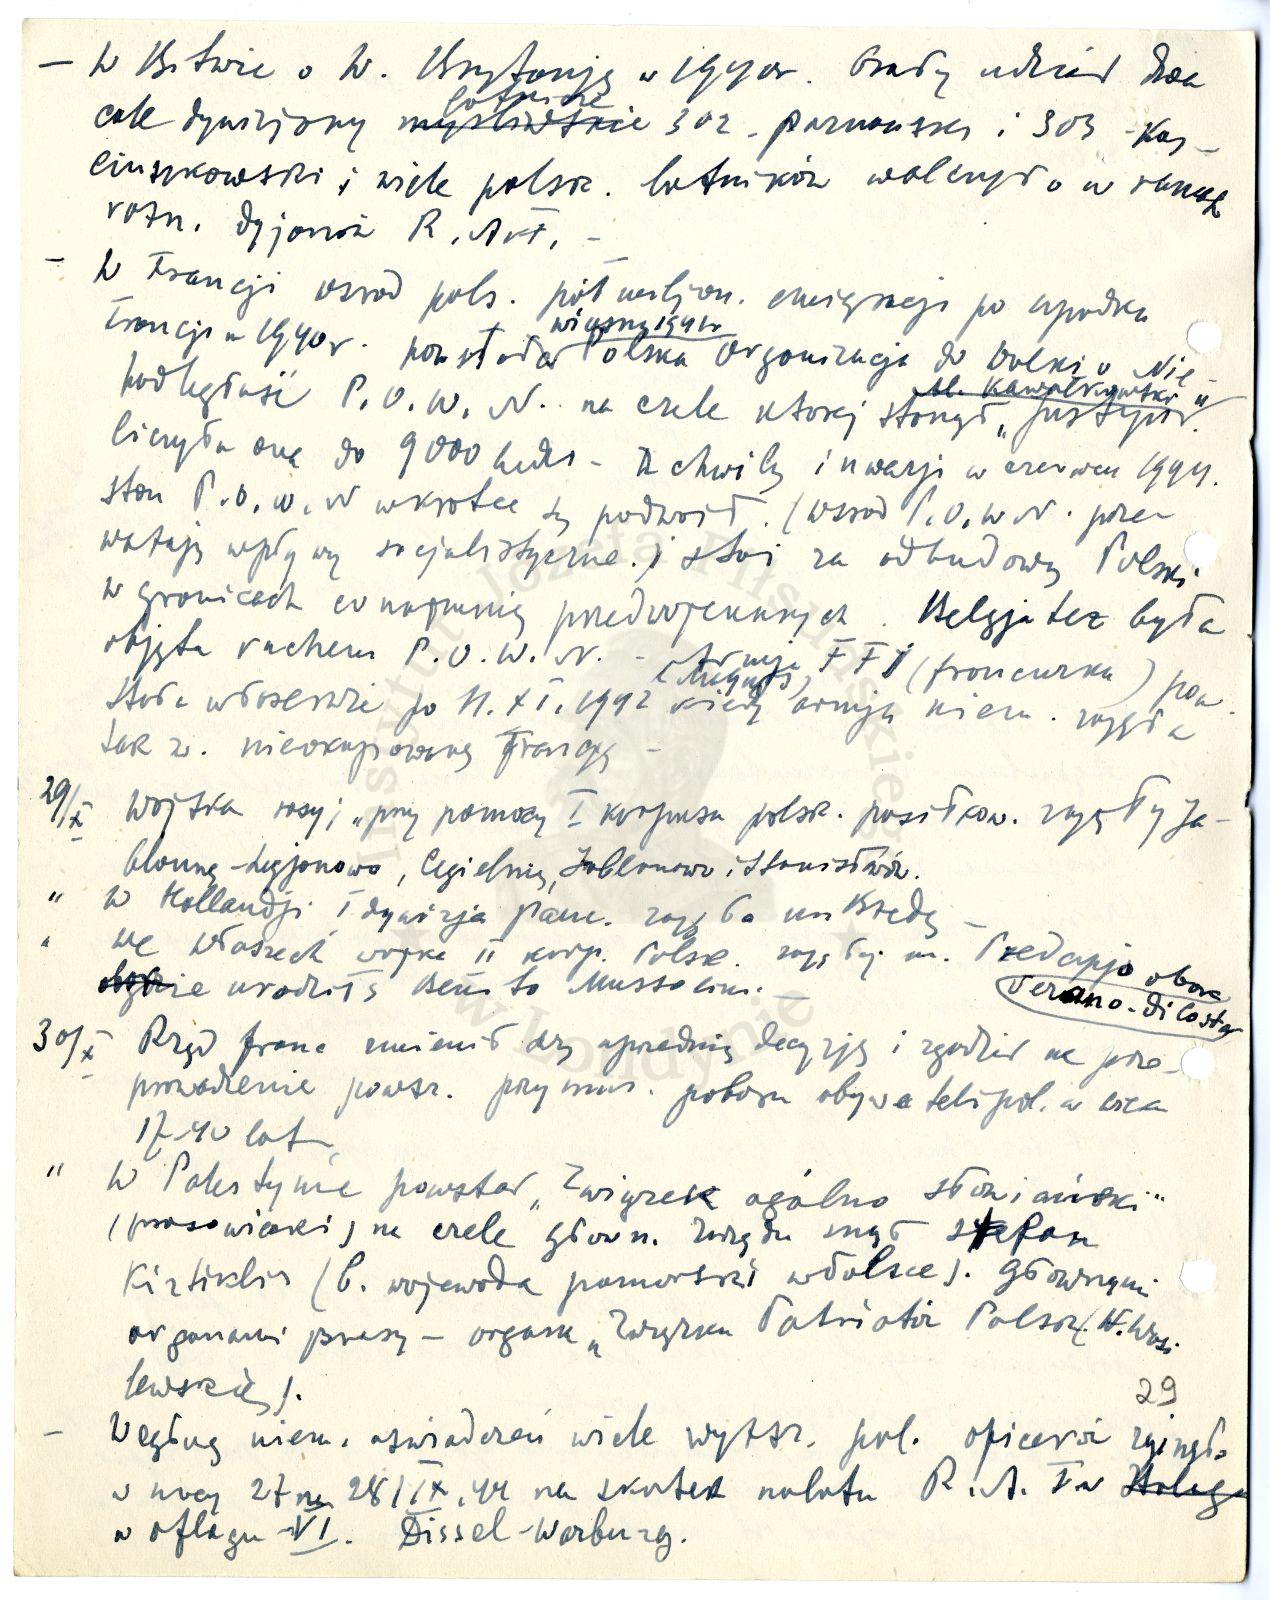 – W Bitwie o W. Brytanję w 1940r. brały udział dwa
lotnicze
całe dywizjony myśliwskie 302 – poznański i 303 – Koś-
ciuszkowski i wiele polsk. lotników walczyło w ramach
rożn. dyjonów R.A.F. –
– W Francji wsród pols. pół miljon. emigracji po upadku
Francji w 1940r. powstała Polska Organizacja do Walki o Nie-
wiosną 1941r
podległość P.O.W.N. na czele ktorej stanął „Justyn".
Al. Kawałkowski
liczyła ona do 9000 ludzi – Z chwilą inwazji w czerwcu 1944.
stan P.O.W.N wkrotce się podwoił. (wsrod P.O.W.N. prze-
ważają wpływy socjalistyczne.) i stoi za odbudową Polski
w granicach co najmniej przedwojennych. Belgja też była
objęta ruchem P.O.W.N. – Armja F F I (francuska) pow-
(Maquis)
stała właściwie po 11.XI.1942 kiedy armja niem. zajęła
tak zw. nieokupowaną Francję –
29/X Wojska rosyj „przy pomocy I korpusu polsk. posiłkow. zajęły Ja-
błonnę-Legjonowo, Cegielnię, Jabłonowo i Stanisławów.
" W Hollandji I dywizja panc. zajęła m Bredę –
" We Włoszech wojska II korp. Polsk. zajęły m. Predapjo obok
gdzie urodził się Benito Mussolini. – Verano-di Costa
30/X Rząd franc zmienił swą uprzednią decyzję i zgodził na prze-
prowadzenie powsz. przymus. poboru obywateli pol. w wieku
17-40 lat
" W Palestynie powstał „Związek ogólno słowiański"
(prosowiecki) na czele głown. Zarządu stał Stefan
Kirtiklis (b. wojewoda pomorski w Polsce). Głownymi
organami prasy – organ „Związku Patriotów Polsk. (W. Wasi
lewskiej).
29
– Według niem. oświadczeń wiele wyższ. pol. oficerów zginęło
w nocy 27 na 28/IX.44 na skutek nalotu R.A.F w
w oflagu – VI. Dissel-Warburg.
Instytut Józefa Piłsudskiego w Londynie